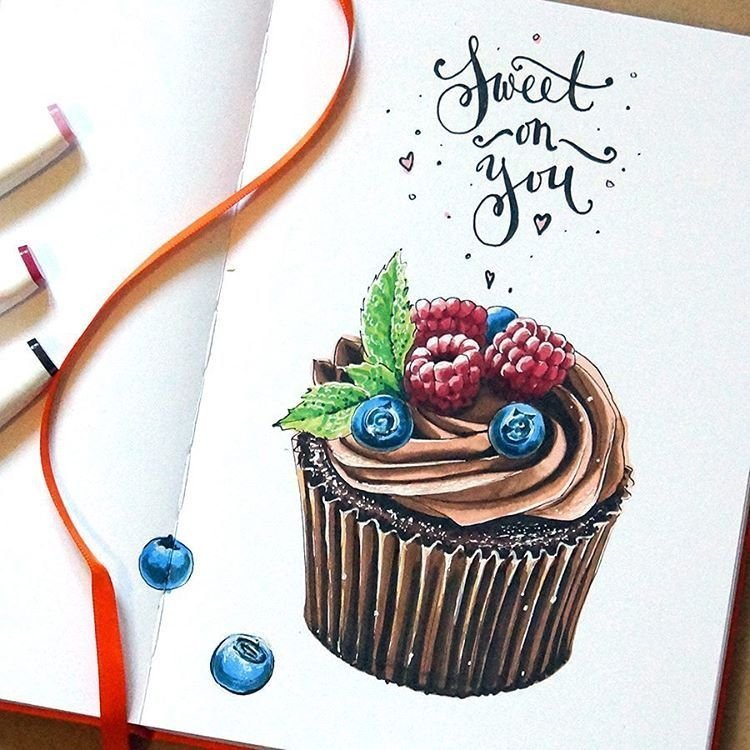 Sweet
on
you